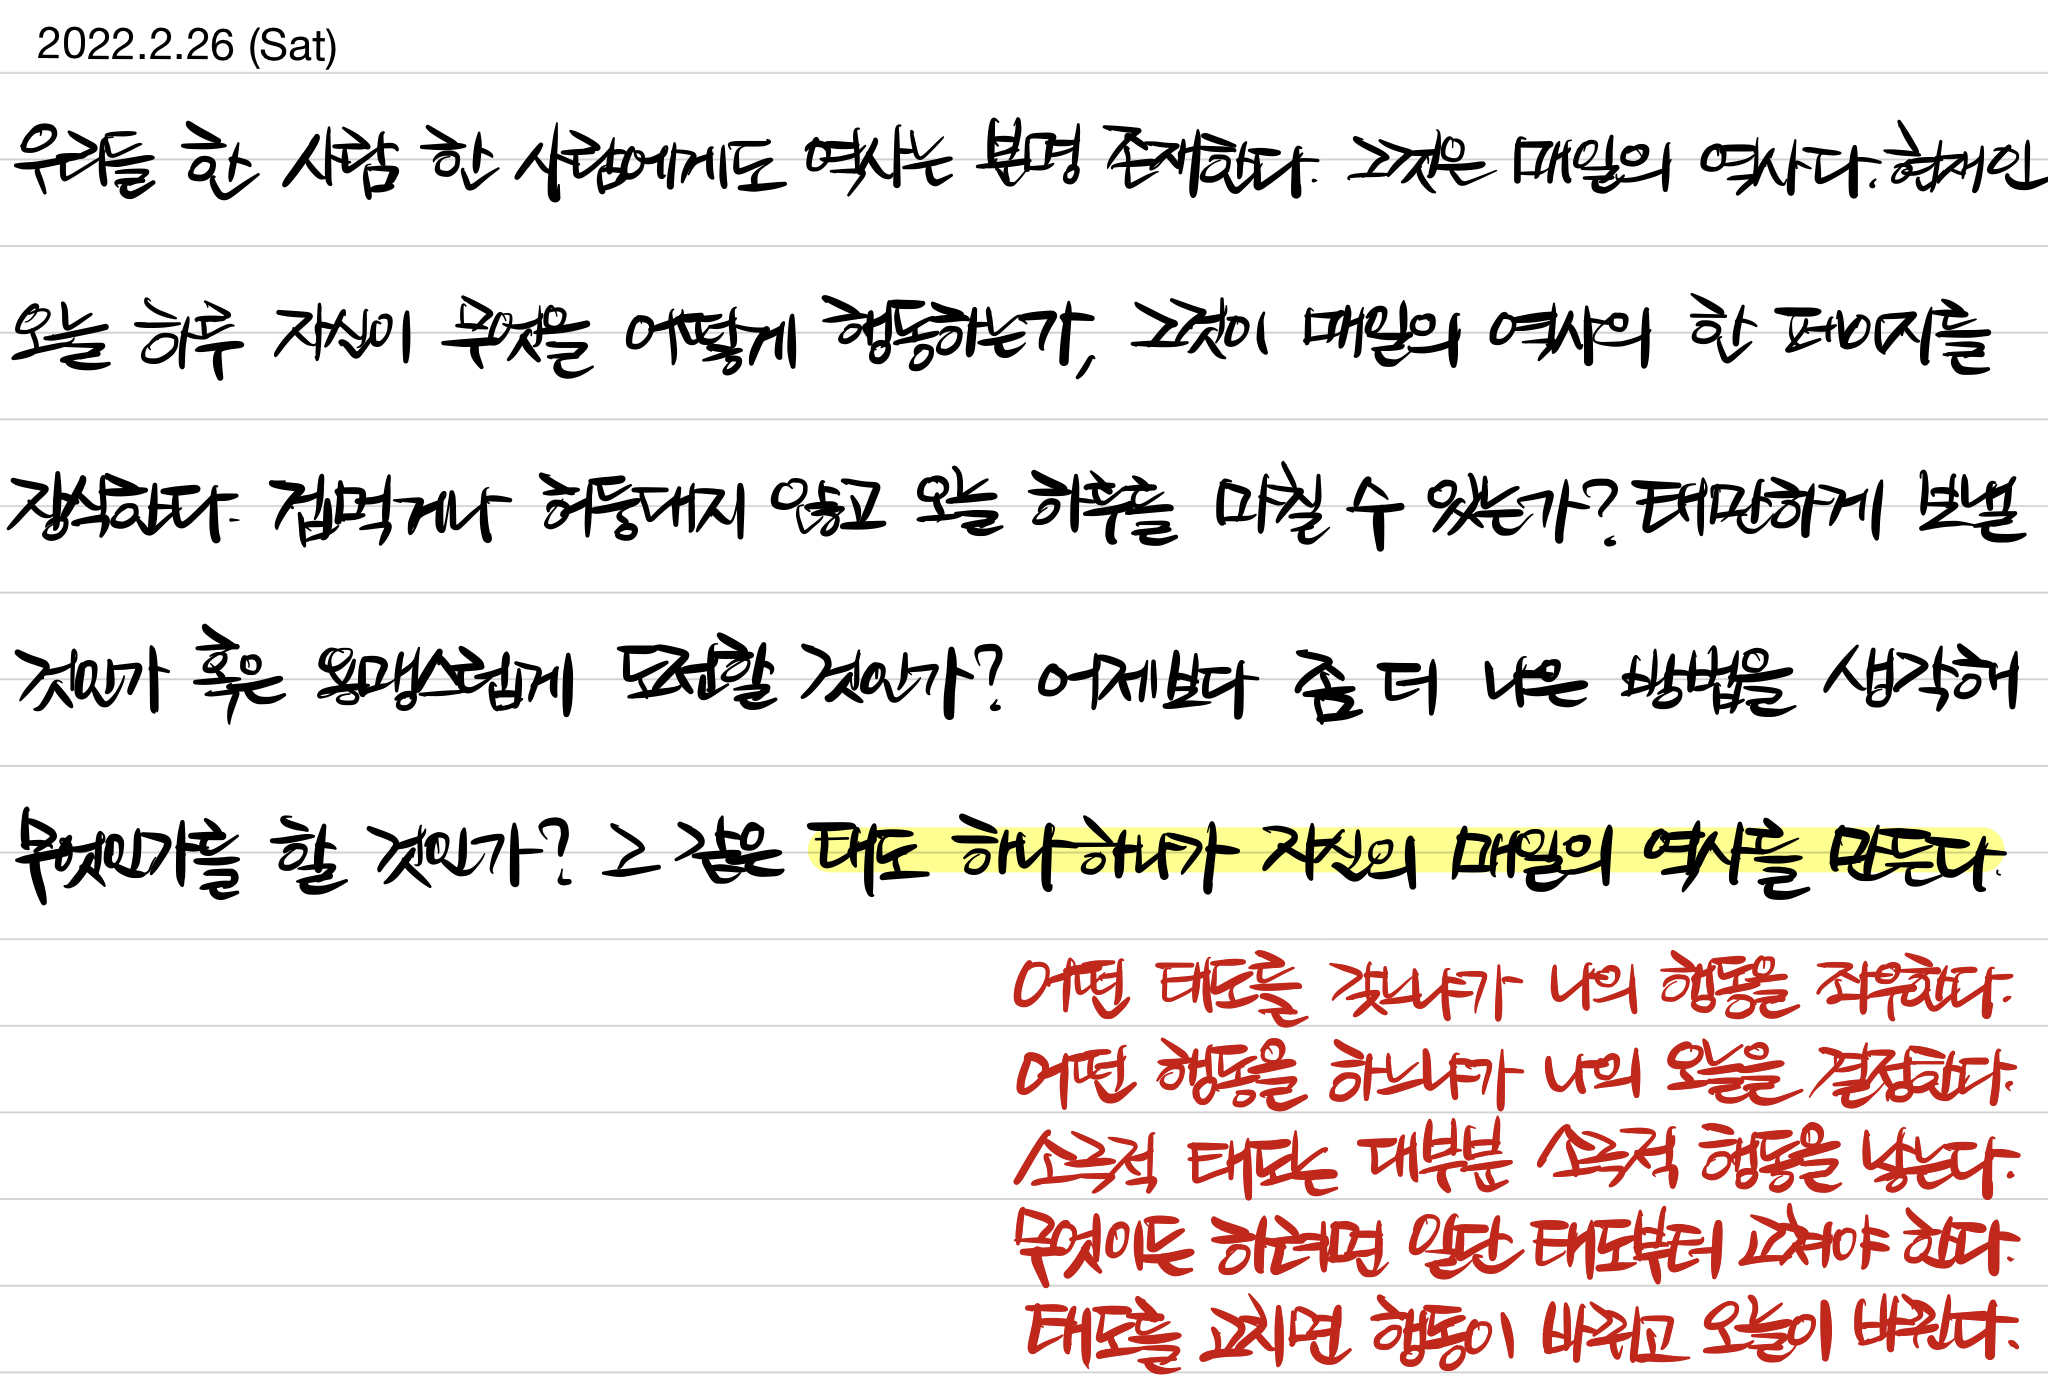 2022.2.26 (Sat)
우리들 한 사람 한 사람에게도 역사는 분명 존재한다. 그것은 매일의 역사다. 현재인
오늘 하루 자신이 무엇을 어떻게 행동하는가, 그것이 매일의 역사의 한 페이지를
장식한다. 겁먹거나 허둥대지 않고 오늘 하루를 마칠 수 있는가? 태만하게 보낼
것인가 혹은 용맹스럽게 도전할 것인가? 어제보다 좀 더 나은 방법을 생각해
무엇인가를 할 것인가? 그 같은 태도 하나하나가 자신의 매일의 역사를 만든다.
어떤 태도를 갖느냐가 나의 행동을 좌우한다.
어떤 행동을 하느냐가 나의 오늘을 결정한다.
소극적 태도는 대부분 소극적 행동을 낳는다.
무엇이든 하려면 일단 태도부터 고쳐야 한다.
태도를 고치면 행동이 바뀌고 오늘이 바뀐다.